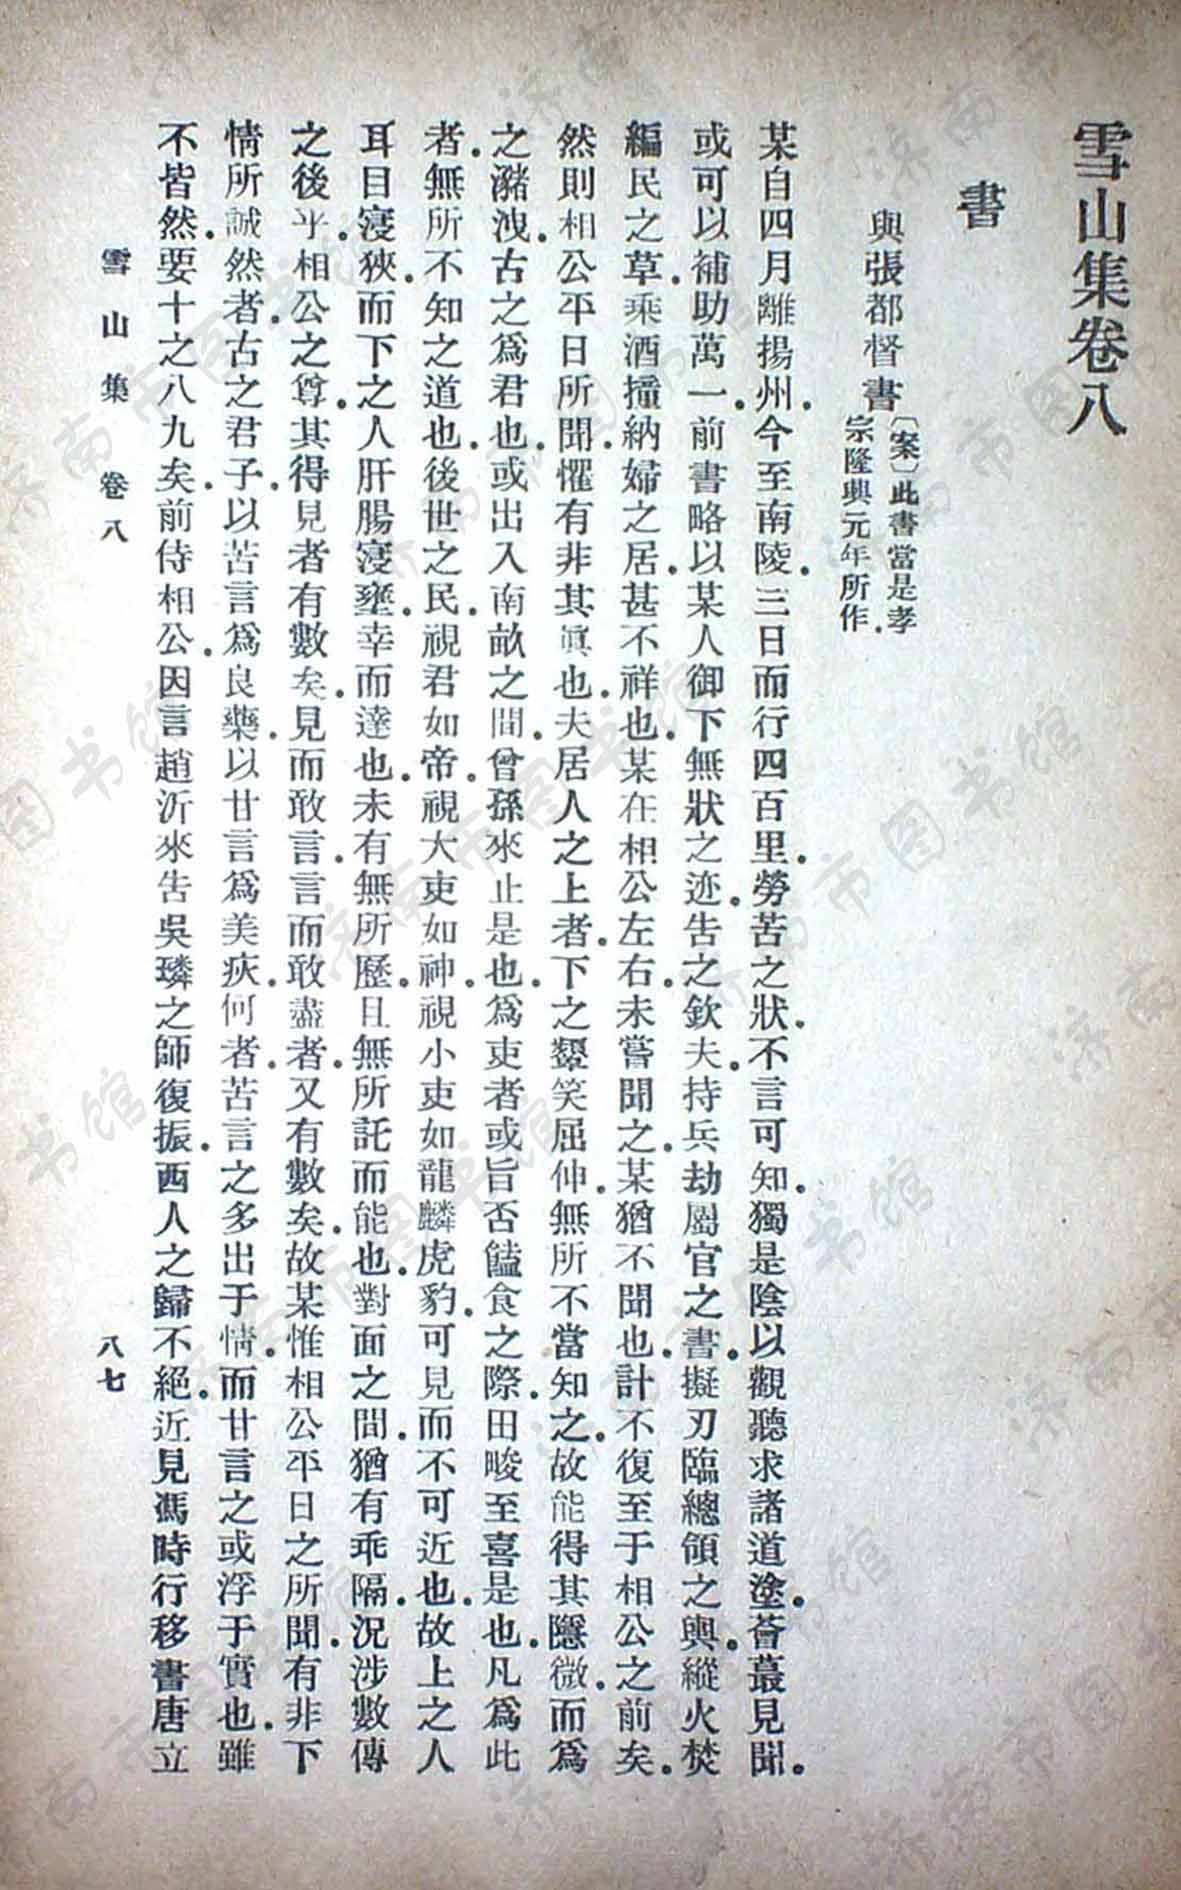 雪山集卷八
書
與張都督書〔案〕此書當是孝
宗隆興元年所作.
某自四月離揚州.今至南陵.三日而行四百里.勞苦之狀.不言可知.獨是陰以觀聽求諸道塗.薈蕞見聞.
或可以補助萬一.前書略以某人御下無狀之迹.告之欽夫.持兵劫闔官之書.擬刃臨總領之輿.縱火焚
編民之草.乘酒撞納婦之居.甚不祥也.某在相公左右.未嘗聞之.某猶不聞也.計不復至于相公之前矣.
然則相公平日所聞.懼有非其眞也.夫居人之上者.下之顰笑屈伸.無所不當知之.故能得其隱微.而爲
之瀦洩.古之爲君也.或出入南畝之間.曾孫來止是也.爲吏者或旨否饁食之際.田畯至喜是也.凡爲此
者.無所不知之道也.後世之民.視君如帝.視大吏如神.視小吏如龍麟虎豹.可見而不可近也.故上之人
耳目寖狹.而下之人肝腸寖壅.幸而達也.未有無所歷.且無所託而能也.對面之間.猶有乖隔.況涉數傳
之後乎.相公之尊.其得見者有數矣.見而敢言.言而敢盡者.又有數矣.故某惟相公平日之所聞.有非下
情所誠然者.古之君子.以苦言爲良藥.以甘言爲美疢.何者.苦言之多出于情.而甘言之或浮于實也.雖
不皆然.要十之八九矣.前侍相公.因言趙沂來告吳璘之師復振.西人之歸不絕.近見馮時行移書唐立
雪山集 卷八
八七